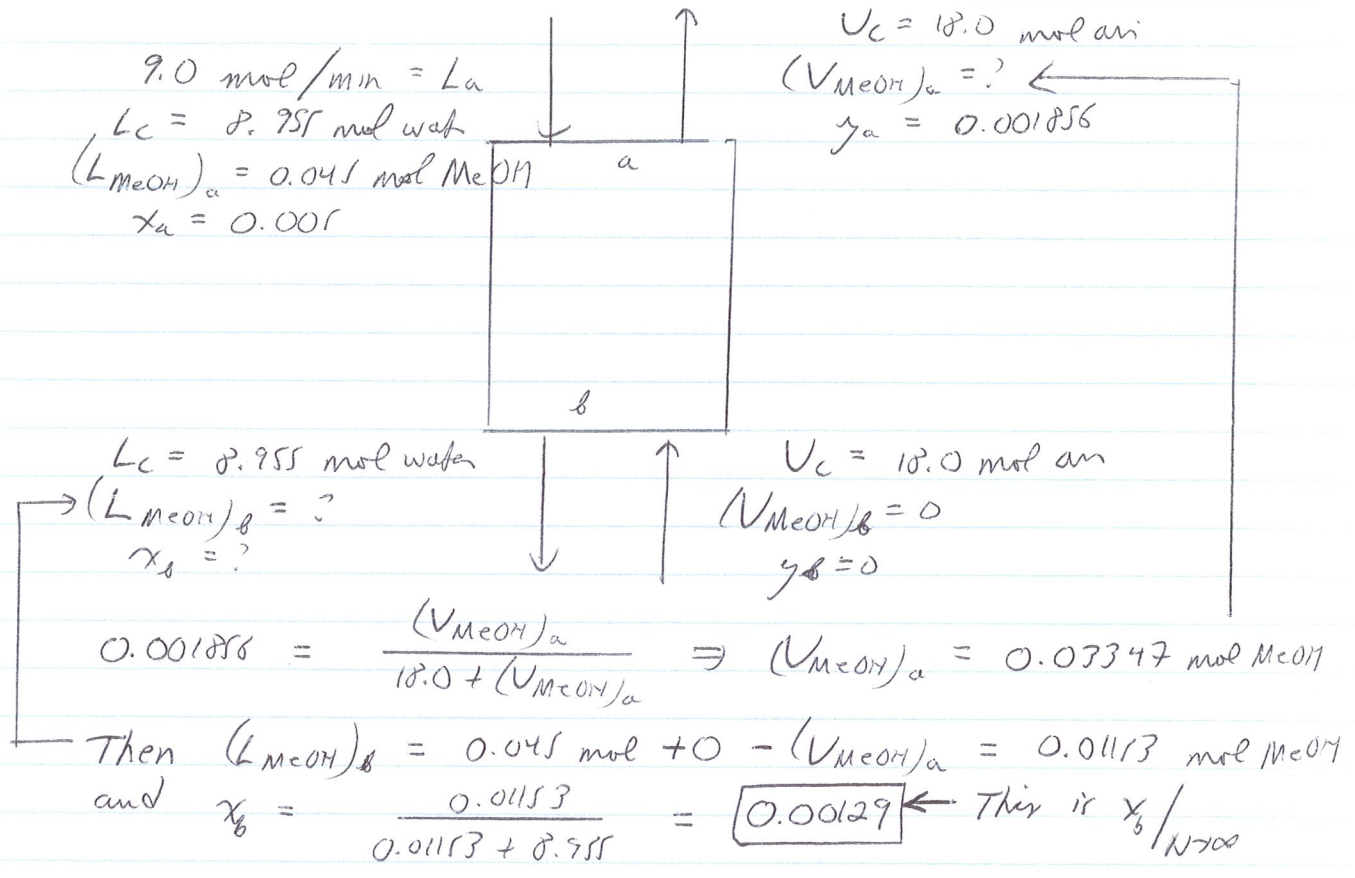 9.0 mol/min = La
Lc = 8.955 mol wat
(L MeOH)a = 0.045 mol MeOH
xa = 0.005
Vc = 18.0 mol air
(V MeOH)a = ?
ya = 0.001856
a
b
Lc = 8.955 mol water
(L MeOH)b = ?
xb = ?
Vc = 18.0 mol air
(V MeOH)b = 0
yb = 0
0.001856 = (V MeOH)a / 18.0 + (V MeOH)a ⇒ (V MeOH)a = 0.03347 mol MeOH
Then (L MeOH)b = 0.045 mol + 0 - (V MeOH)a = 0.01153 mol MeOH
and xb = 0.01153 / 0.01153 + 8.955 = 0.00129 ← This is xb/N→∞